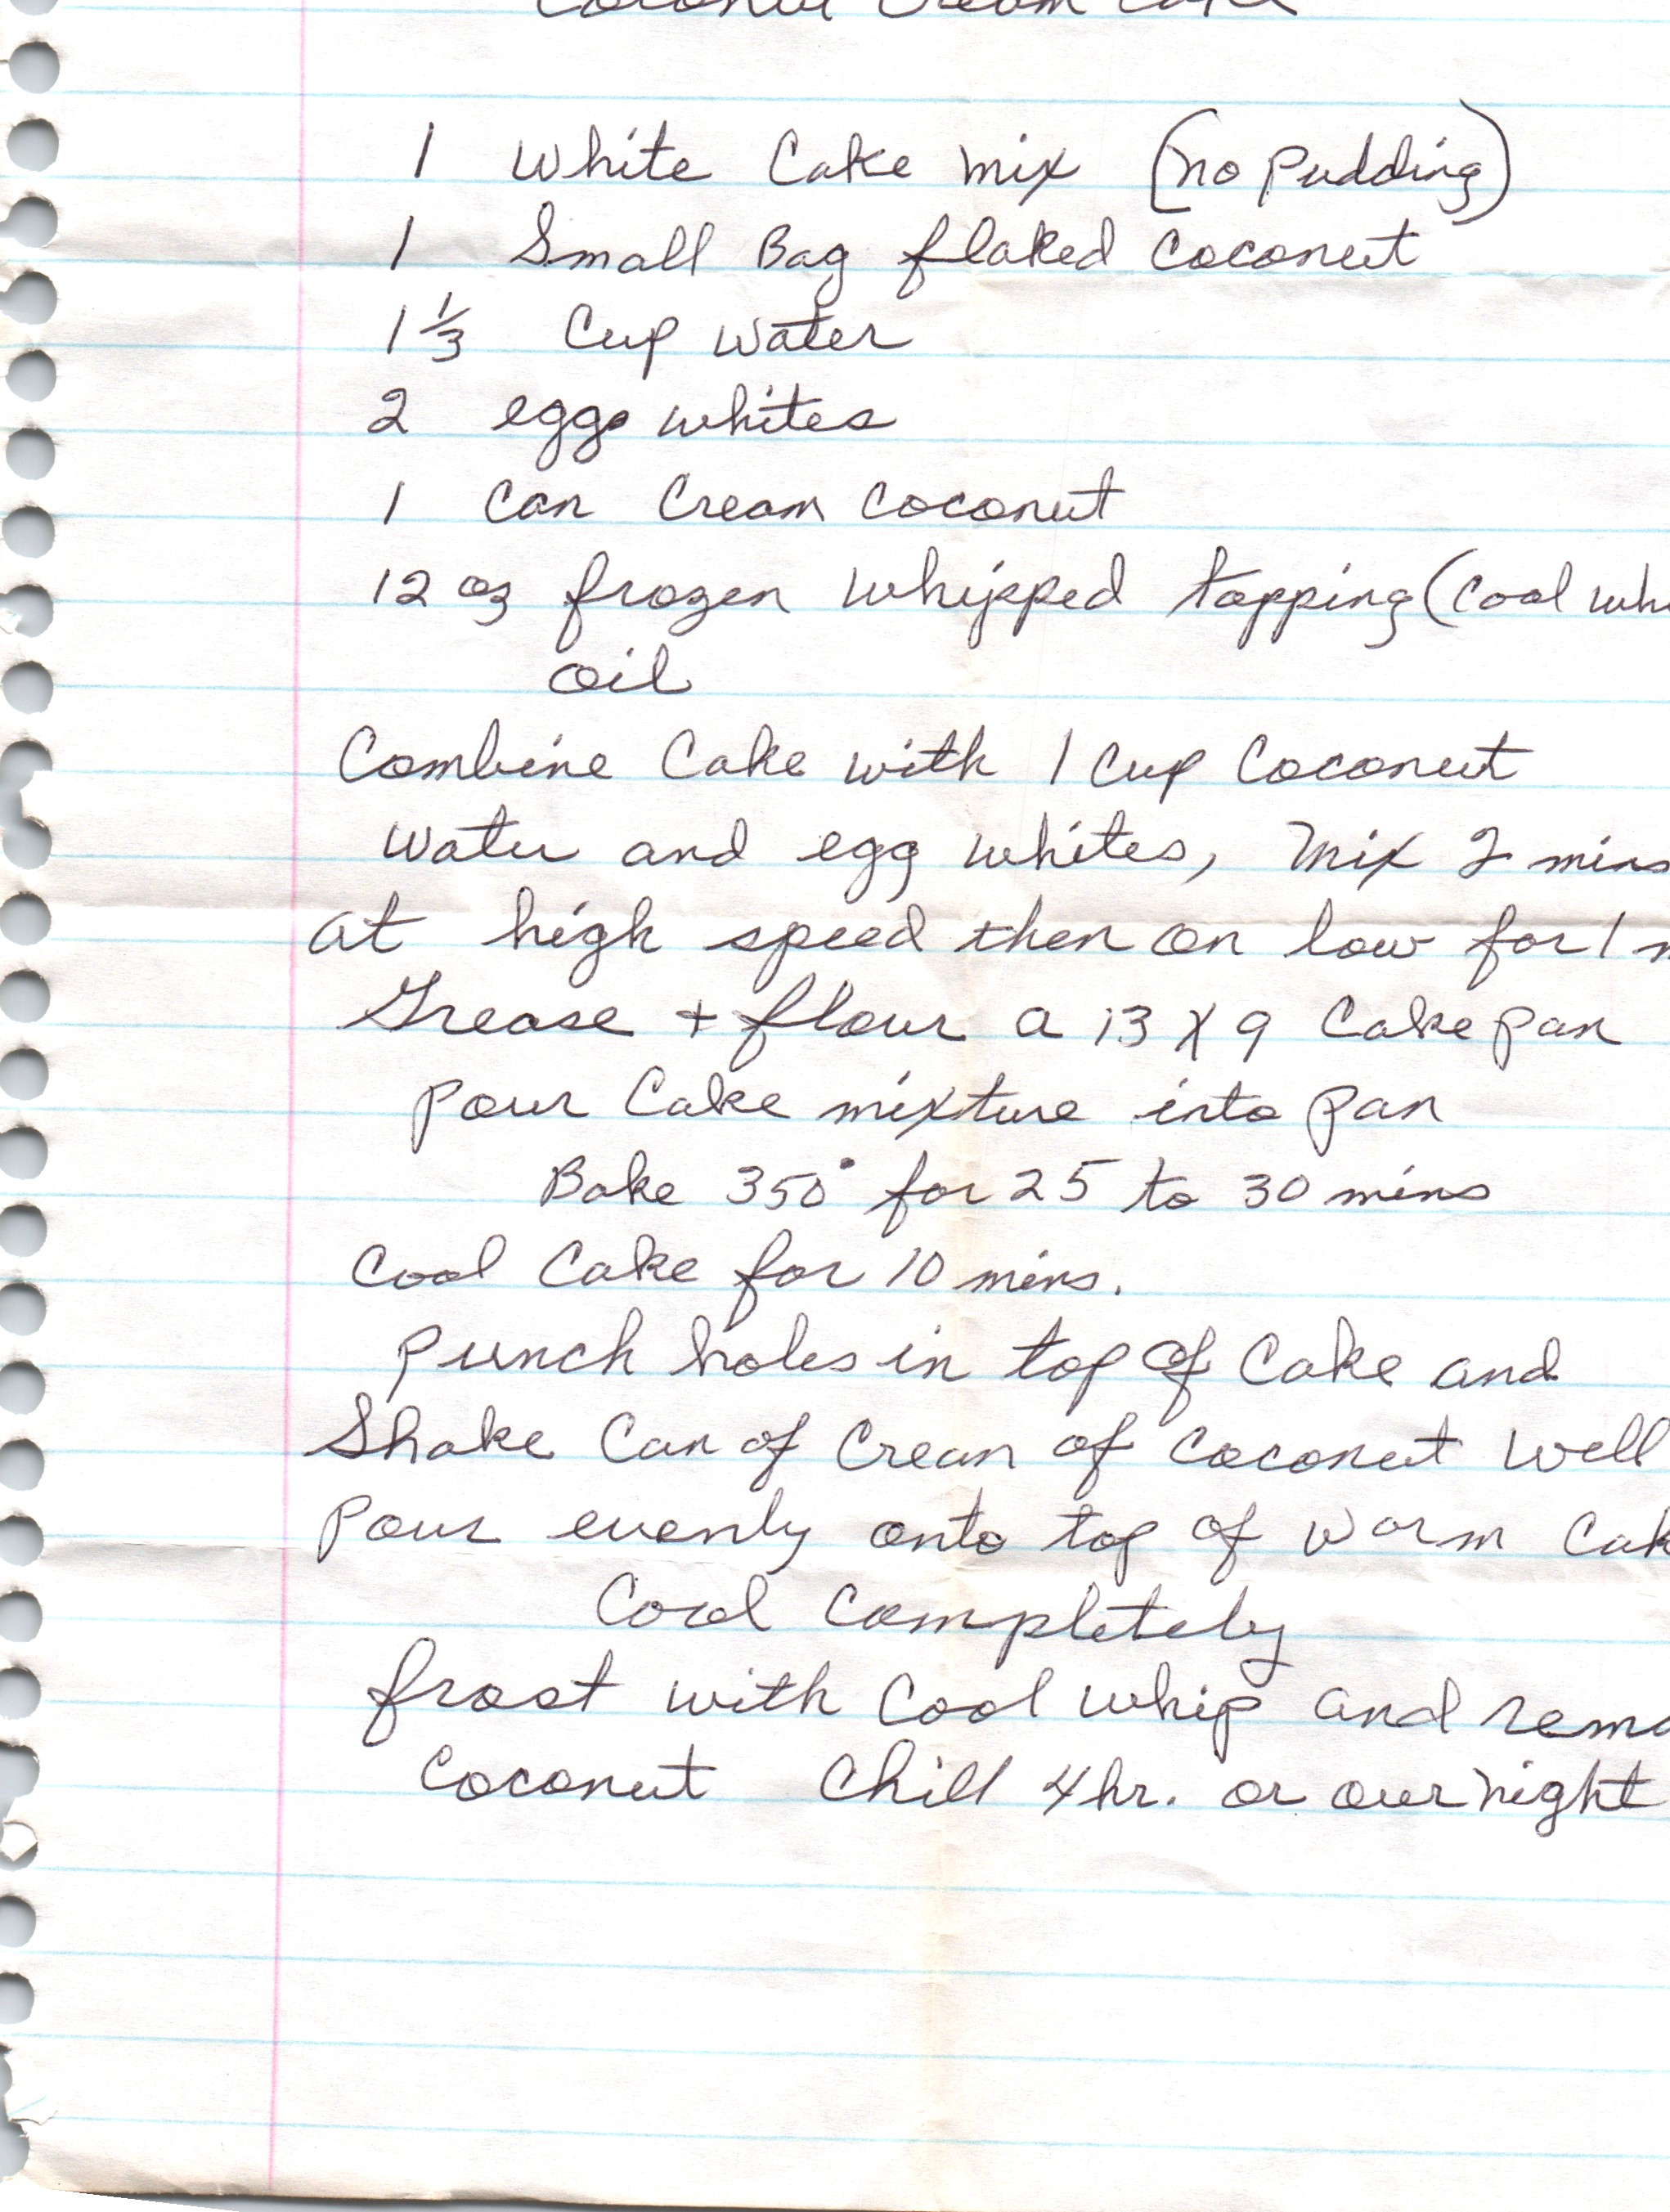 Coconut Cream Cake
1 White Cake mix (no pudding)
1 Small Bag flaked Coconut
1 1/3 Cup water
2 eggs whites
1 Can Cream Coconut
12 oz frozen whipped topping (Cool whi
oil
Combine Cake with 1 Cup Coconut
water and egg whites, mix 2 mins
at high speed then on low for 1 m
Grease + flour a 13 X 9 Cake pan
pour Cake mixture into pan
Bake 350° for 25 to 30 mins
Cool Cake for 10 mins.
punch holes in top of Cake and
Shake Can of Cream of Coconut Well
Pour evenly onto top of warm Cak
Cool Completely
frost with Cool whip and rema
Coconut Chill 4 hr. or over night